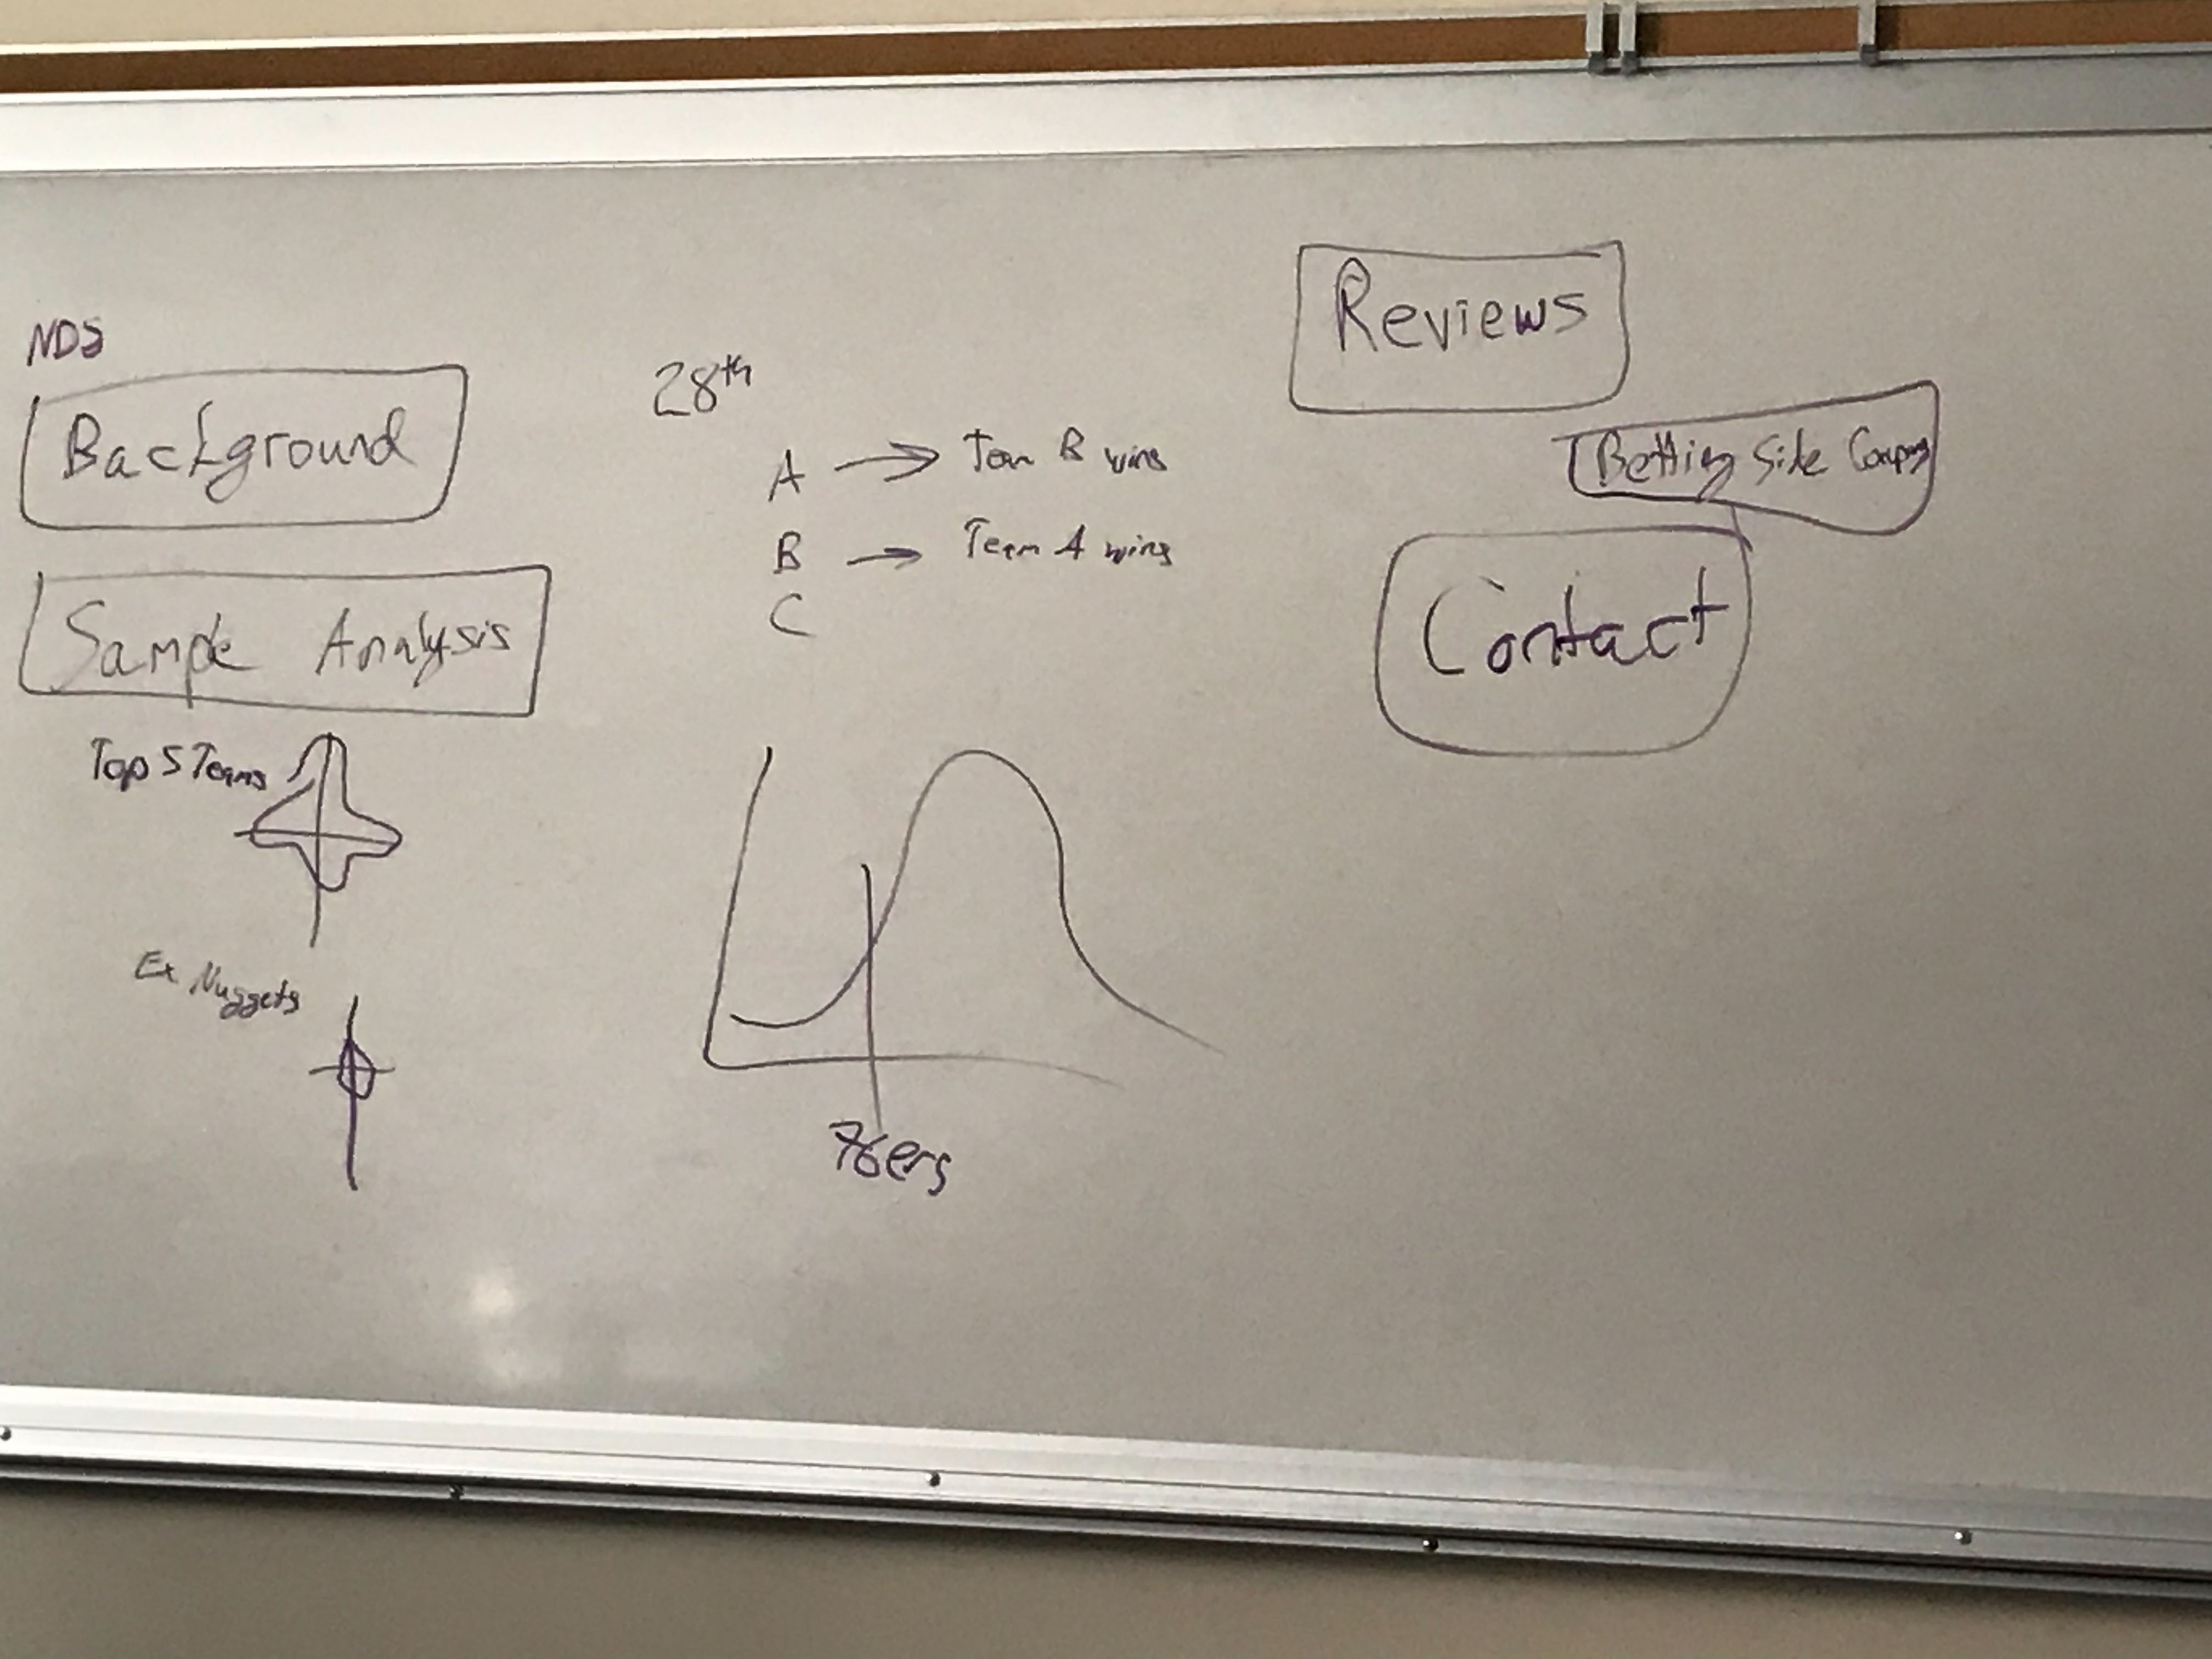 NDS
Background
Sample Analysis
Top 5 Teams
Ex Nuggets
28th
A → Team B wins
B → Team A wins
C
76ers
Reviews
Betting Side
Contact